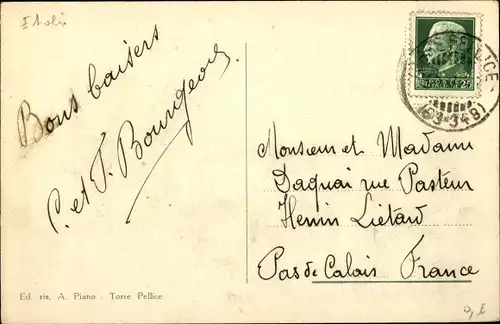 Italie
Bons baisers
P. et J. Bourgeois
Monsieur et Madame
Daquai rue Pasteur
Henin Lietard
Pas de Calais France
Ed. ris. A. Piano - Torre Pellice.